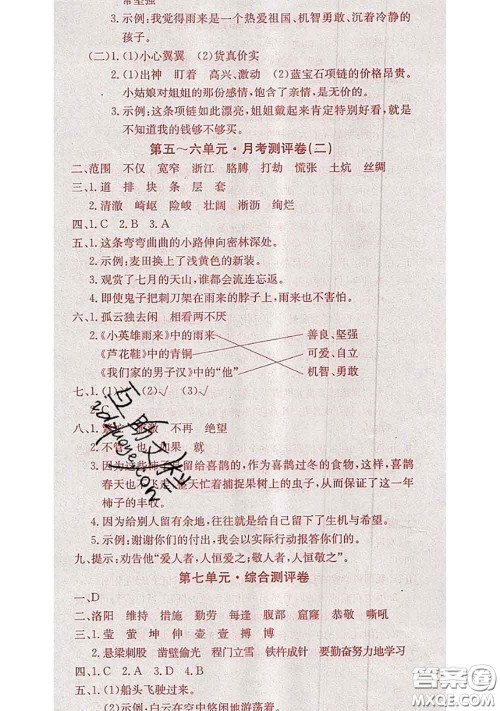 常坚强
3.示例:我觉得雨来是一个热爱祖国、机智勇敢、沉着冷静的
孩子。
(二)1.(1)小心翼翼 (2)货真价实
2.(1)出神 盯着 高兴、激动 (2)蓝宝石项链的价格昂贵。
小姑娘对姐姐的那份感情,包含了亲情,是无价的。
3.示例:这条项链如此漂亮,姐姐戴起来肯定特别好看,就是
不知道我的钱够不够买。
第五～六单元·月考测评卷(二)
二、范围 不仅 宽窄 浙江 胳膊 打劫 慌张 土炕 丝绸
三、1.道 排 块 条 层 套
2.清澈 崎岖 险峻 壮阔 渐沥 绚烂
四、1.C 2.B 3.A
五、1.这条弯弯曲曲的小路伸向密林深处。
2.示例:麦田换上了浅黄色的新装。
3.观赏了七月的天山,谁都会流连忘返。
4.即使鬼子把刺刀架在雨来的脖子上,雨来也不害怕。
六、1.孤云独去闲 相看两不厌
2.《小英雄雨来》中的雨来 善良、坚强
《芦花鞋》中的青铜 可爱、自立
《我们家的男子汉》中的“他” 机智、勇敢
七、1.(1) (2)√ (3)√
2.
八、1. 不再 绝望
2.不管 也 如果 就
3.因为这些柿子是留给喜鹊的,喜鹊过冬的食物,这样,喜鹊
春天也不到 整天忙着捕捉果树上的虫子,从而保证了这一年
柿子的丰收。
4.因为给别人留有余地,往往就是给自己留下了生机与希望。
5.示例:谢谢你们的付出,我会以实际行动报答你们的。
九、提示:劝告他“爱人者,人恒爱之;敬人者,人恒敬之”。
第七单元·综合测评卷
一、D
二、洛阳 维持 措施 勤劳 每逢 腹部 窟窿 恭敬 嘶吼
三、1.莹 萤 坤 伸 壶 壹 搏 博
2.悬梁刺股 凿壁偷光 程门立雪 铁杵成针 要勤奋努力地学习
四、1.C 2.A 3.D 4.A
五、1.(1)船头飞驶过来。
(2)示例:白云在空中悠闲地游荡着。
答案圈
MXQE.COM
互助文库
zdhhome.com